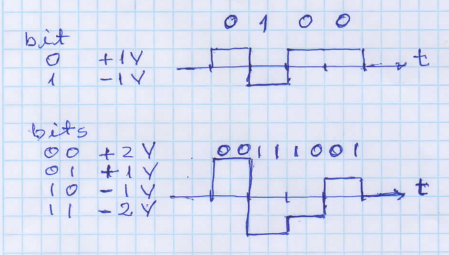 0 1 0 0
bit
0 +1V
1 -1V
t
bits
00 +2V
01 +1V
10 -1V
11 -2V
00111001
t